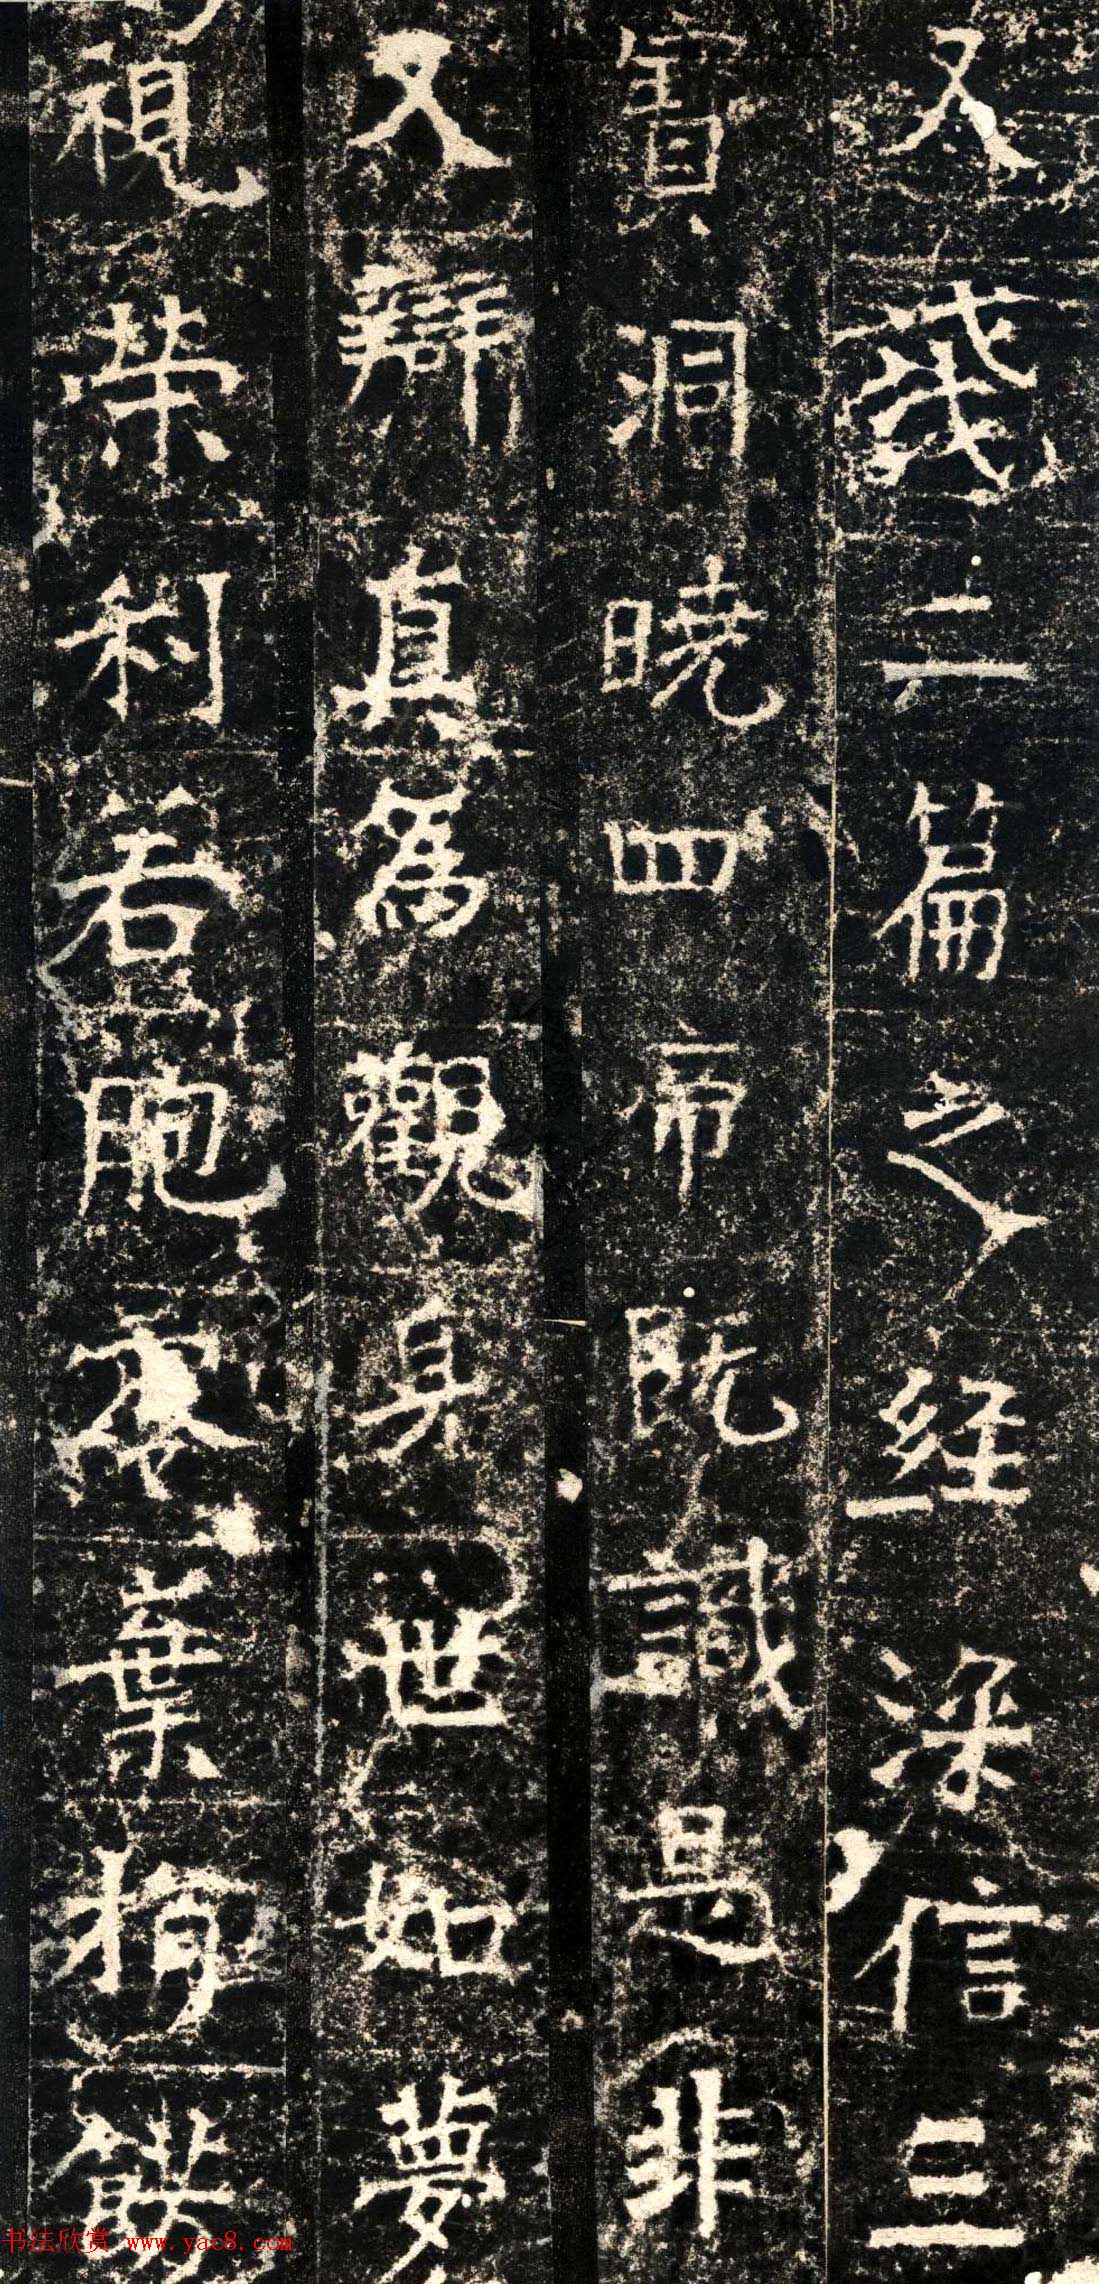 又二篇之経深信三
寶洞曉四帝既識是非
又辯真爲觀身世如夢
視榮利若葉捐
书法欣赏 www.yac8.com